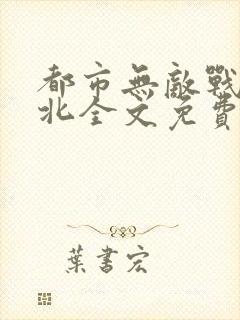 都市無敵戰
北全文免費
葉書宏